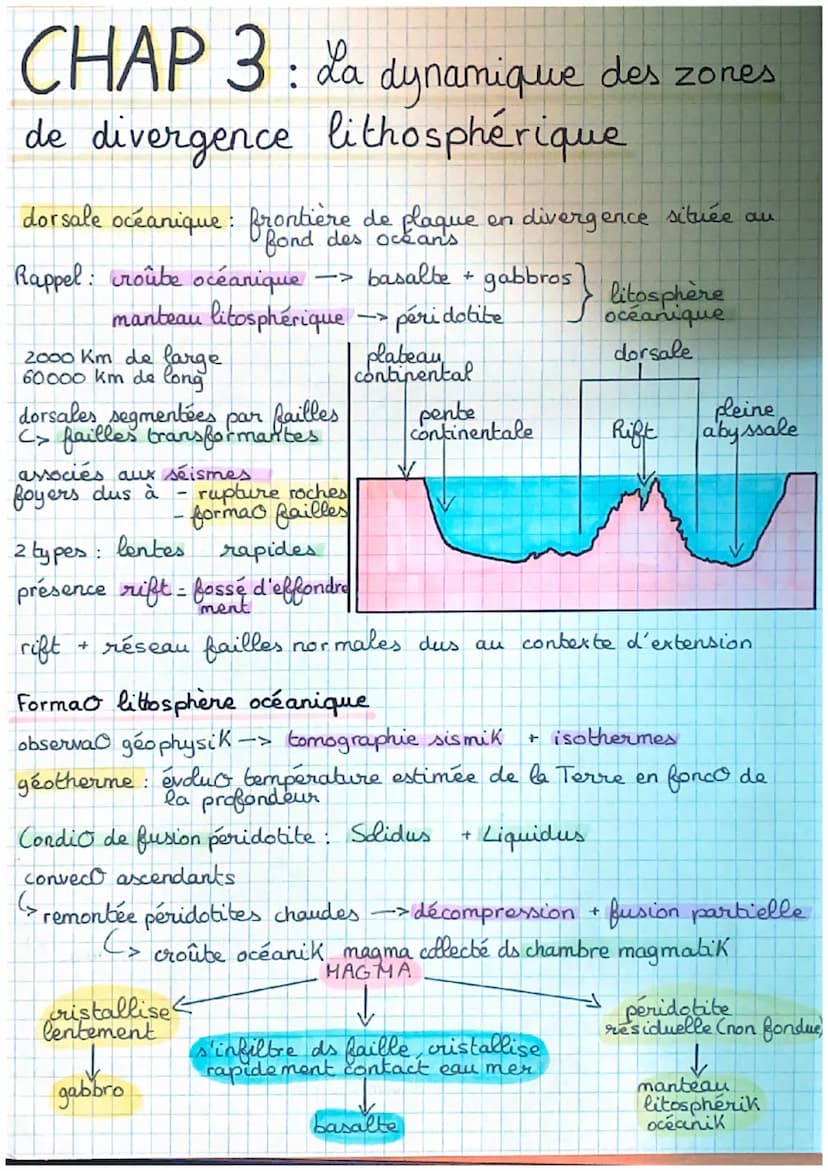 CHAP 3 : La dynamique des zones
de divergence lithosphérique
dorsale océanique : frontière de plaque en divergence située au
fond des océans
Rappel : croûte océanique --> basalte + gabbros
manteau litosphérique --> péridotite
litosphère
océanique
2000 Km de large
60000 Km de long
dorsales segmentées par failles
↳ failles transformantes
associés aux séismes
foyers dus à - rupture roches
- formaO failles
2 types : lentes rapides
présence rift = fossé d'effondre
ment
plateau
continental
pente
continentale
dorsale
Rift
pleine
abyssale
rift + réseau failles normales dus au contexte d'extension
FormaO litosphère océanique
observaO géophysiK --> tomographie sismiK + isothermes
géotherme : évoluO température estimée de la Terre en foncO de
la profondeur
CondiO de fusion péridotite : Solidus + Liquidus
convecO ascendants
↳ remontée péridotites chaudes --> décompression + fusion partielle
↳ croûte océaniK magma collecté ds chambre magmatiK
MAGMA
cristallise
lentement
gabbro
s'infiltre ds faille, cristallise
rapidement contact eau mer
basalte
péridotite
résiduelle (non fondue)
manteau
litosphériK
océaniK